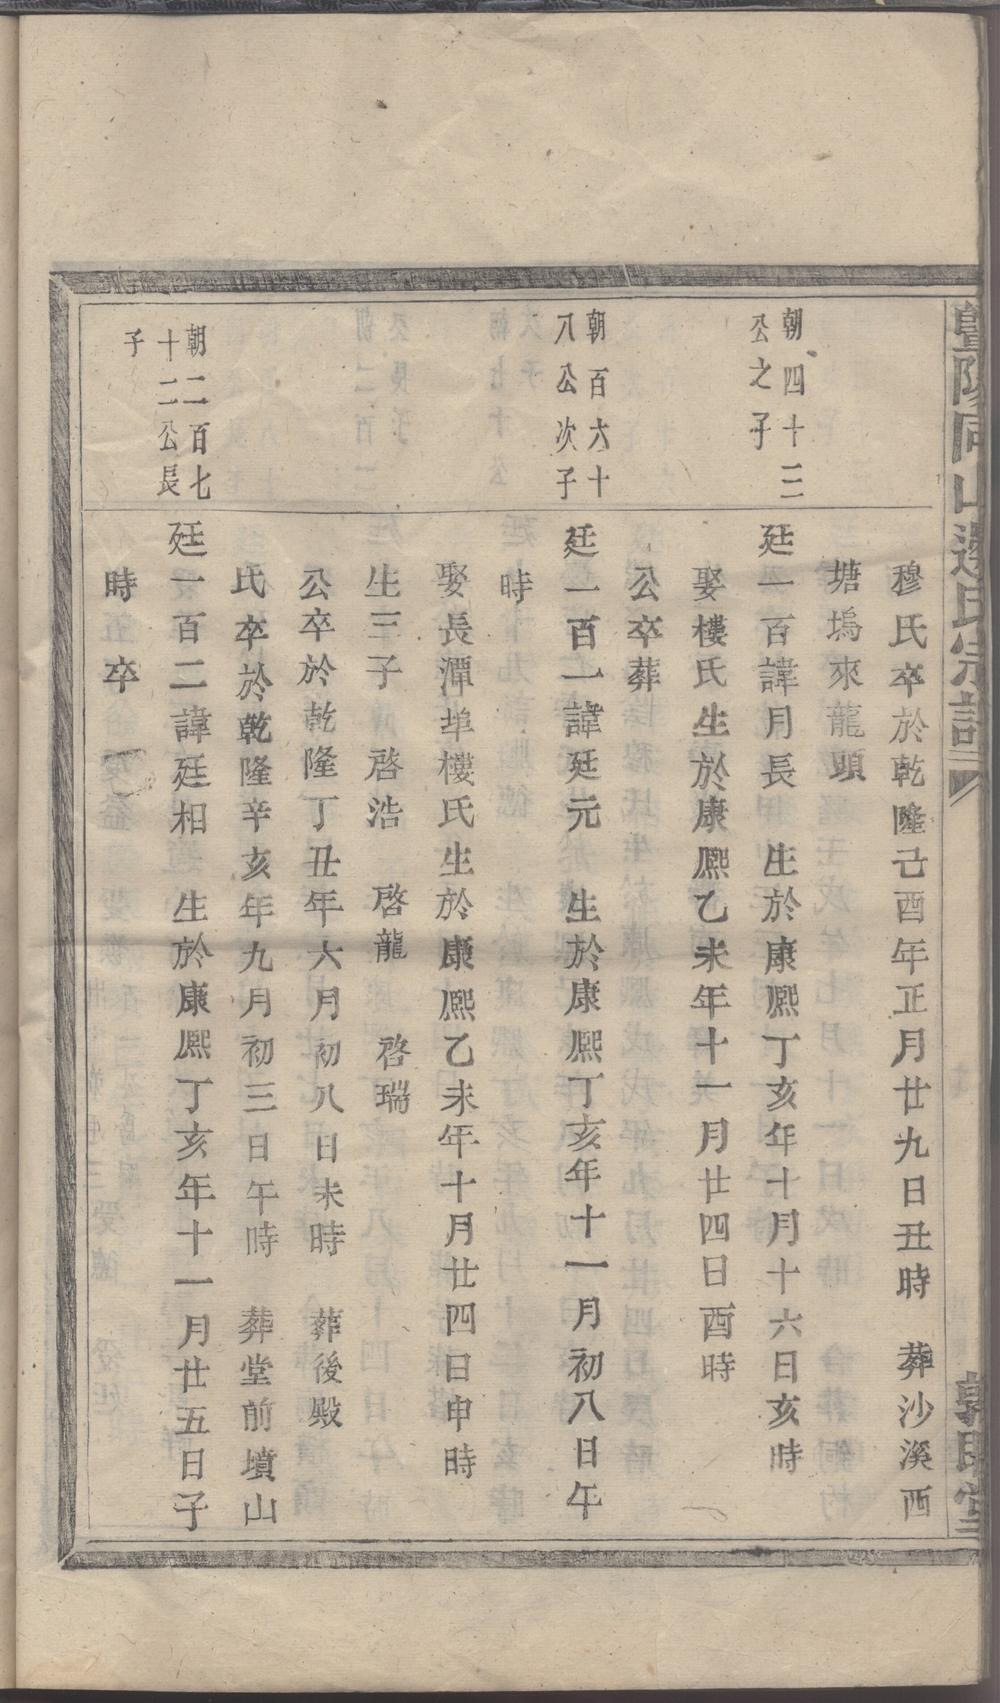 暨陽同山邊氏宗譜
穆氏卒於乾隆己酉年正月廿九日丑時 葬沙溪西
塘塢來龍頭
朝四十三
公之子
廷一百諱月長 生於康熈丁亥年十月十六日亥時
娶樓氏生於康熈乙未年十一月廿四日酉時
公卒葬
朝百六十
八公次子
廷一百一諱廷元 生於康熈丁亥年十一月初八日午
時
娶長潭埠樓氏生於康熈乙未年十月廿四日申時
生三子 啓浩 啓龍 啓瑞
公卒於乾隆丁丑年六月初八日未時 葬後殿
氏卒於乾隆辛亥年九月初三日午時 葬堂前墳山
朝二百七
十二公長
子
廷一百二諱廷相 生於康熈丁亥年十一月廿五日子
時 卒